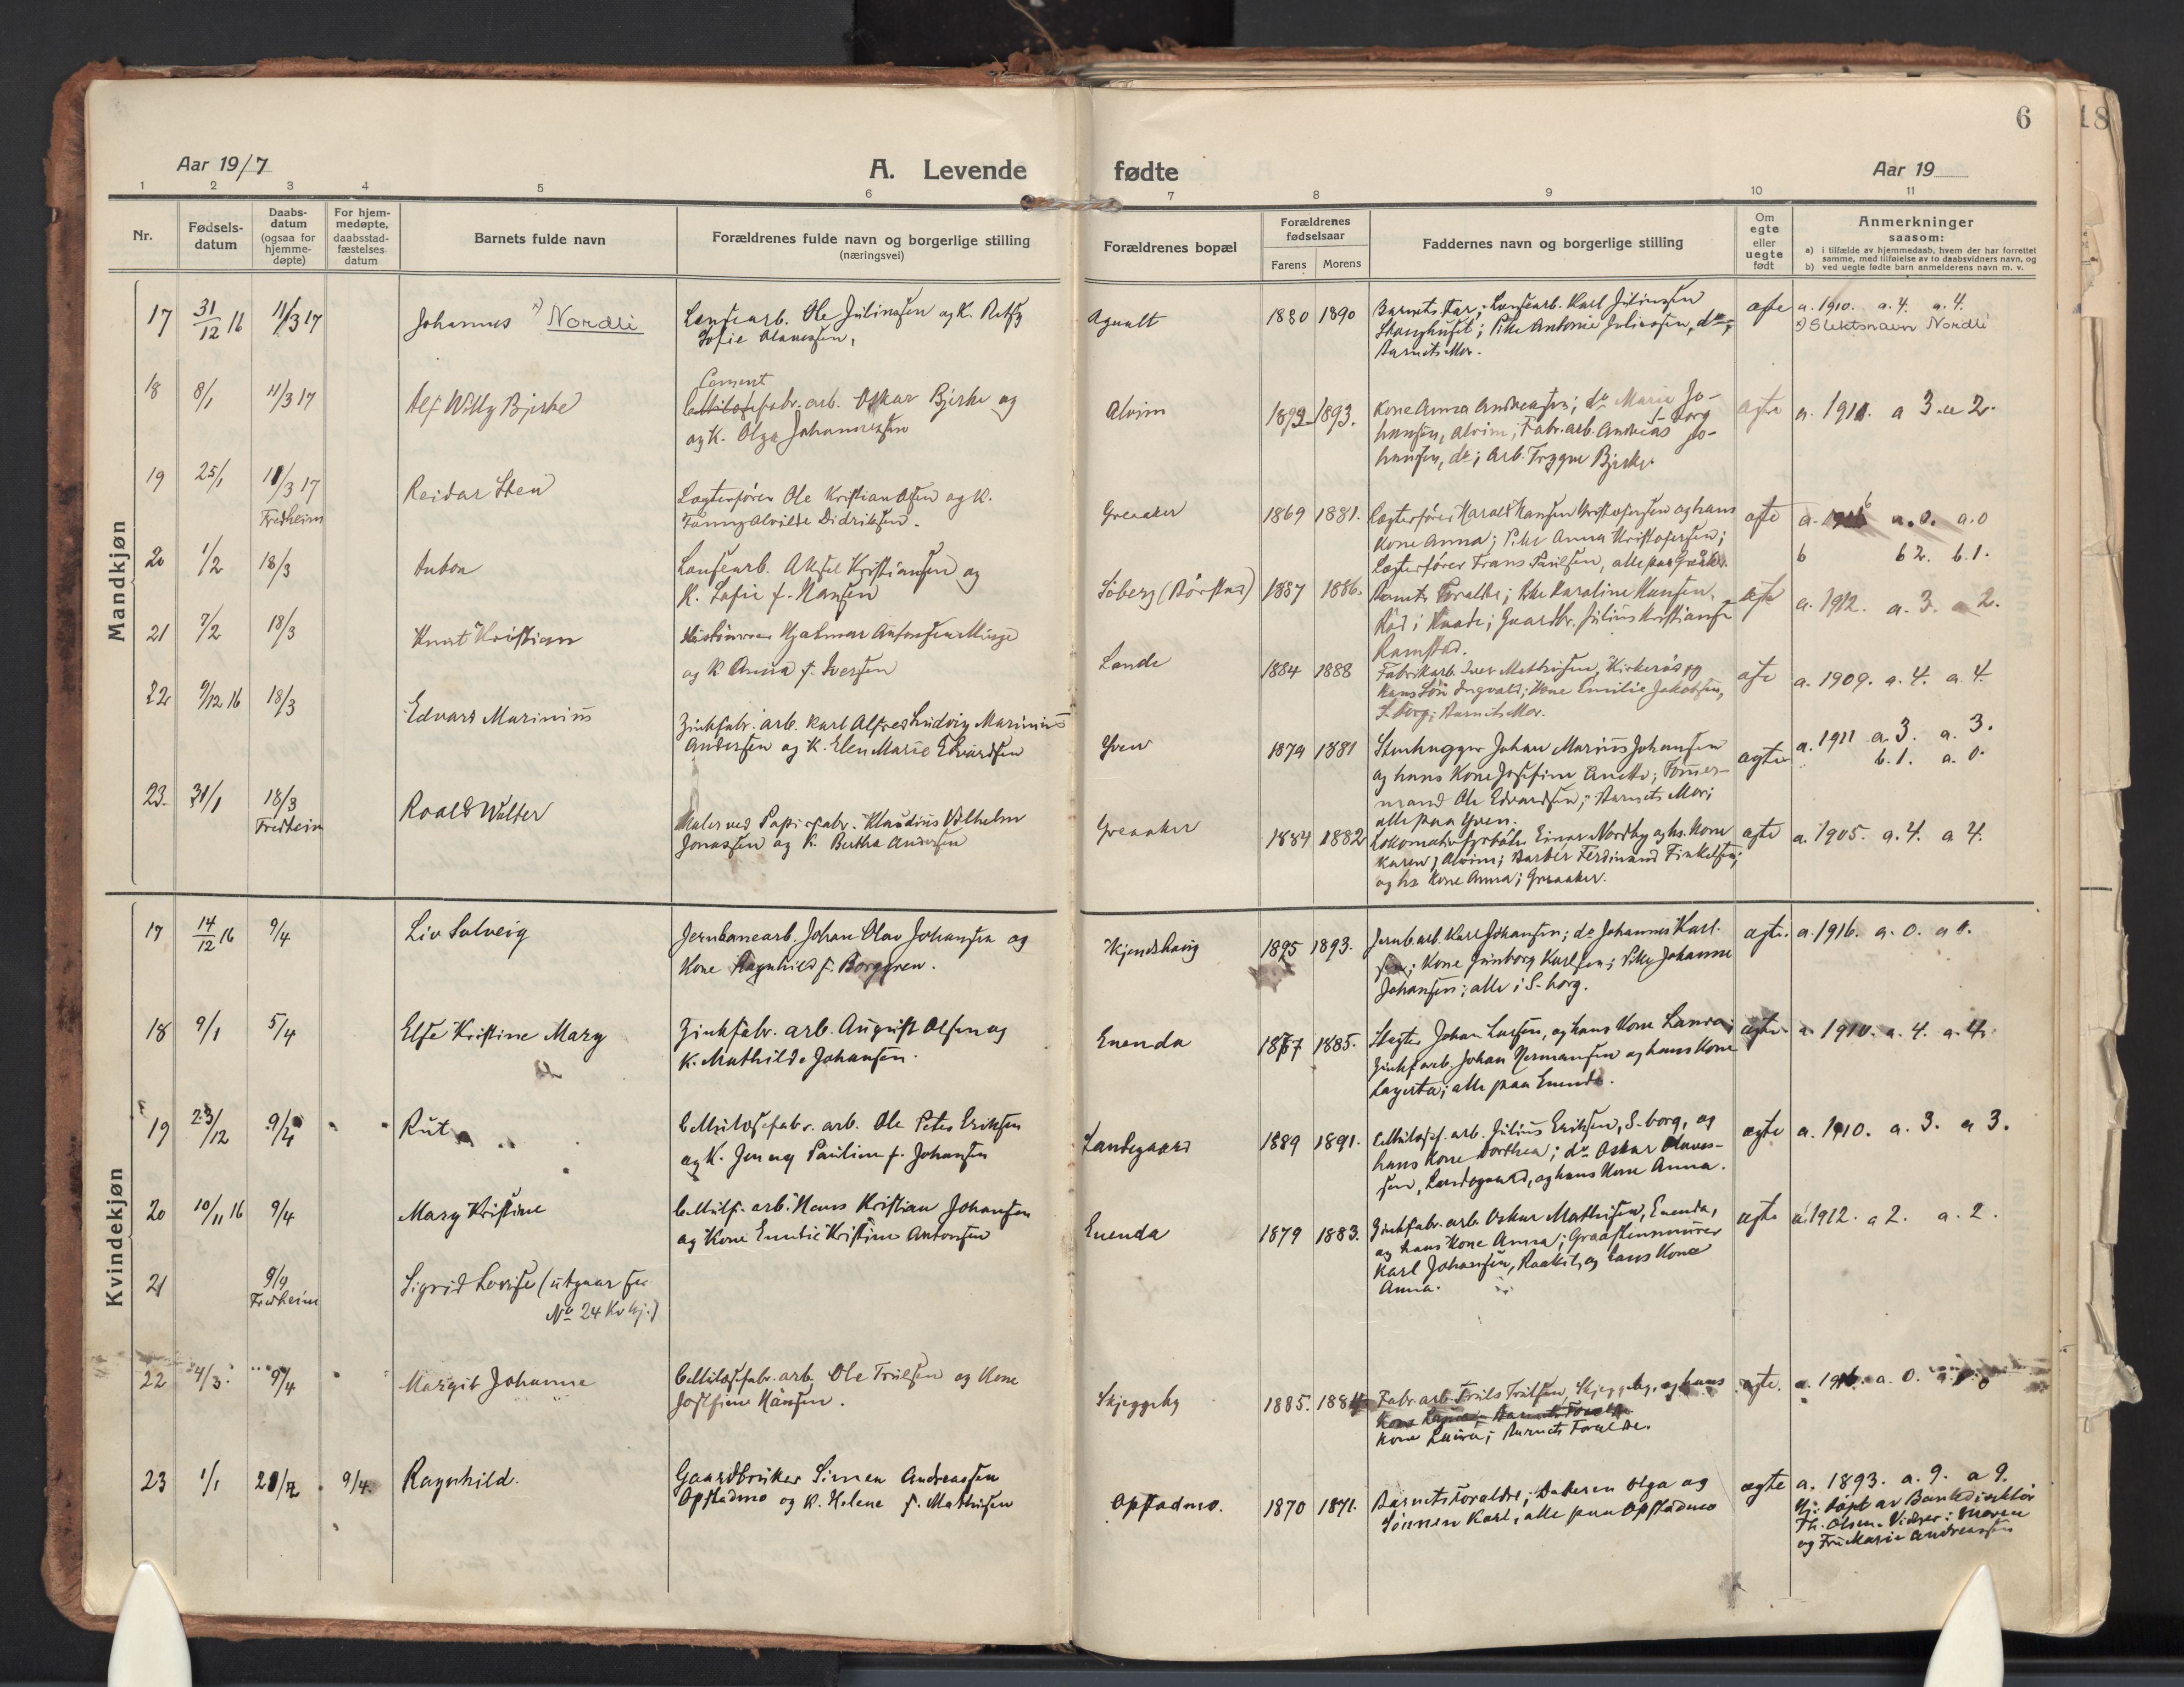 6
18
Aar 19/7
A. Levende
fødte
Aar 19
1 2 3 4 5 6 7 8 9 10 11
Nr.
Fødsels-
datum
Daabs-
datum
(ogsaa for
hjemme-
døpte)
For hjem-
medøpte,
daabsstad-
fæstelses
datum
Barnets fulde navn
Forældrenes fulde navn og borgerlige stilling
(næringsvei)
Forældrenes bopæl
Forældrenes
fødselsaar
Farens Morens
Faddernes navn og borgerlige stilling
Om
egte
eller
uegte
født
Anmerkninger
saasom:
a) i tilfælde av hjemmedaab, hvem der har forrettet
samme, med tilføielse av to daabsvidners navn, og
b) ved uegte fødte barn anmelderens navn m. v.
Mandkjøn
17 31/12 16 11/3 17 Johannes x) Nordli
Lensearb. Ole Julinssen og K.
Sofie
Agaalt 1880 1890
Barnets Far; Lensearb. Karl Julinssen
Pike Antonie Julinssen, do;
Barnets Mor.
egte a. 1910. a. 4. a. 4.
x) Slektsnavn Nordli
18 8/1 11/3 17 Alf Willy Bjerke
Cement
Cellulosefabr. arb. Oskar Bjerke og
og K. Olga Johannessen
Alvim 1892 1893.
Kone Anna Andreassen; do Marie Jo-
hansen, Alvim; Fabr. arb. Andreas Jo-
S-borg
hansen, do; Arb. Trygve Bjerke.
egte a. 1911. a 3. a 2.
19 25/1 11/3 17 Reidar Sten
Fredheim
Lægterfører Ole Kristiansen og K.
Fanny Alvilde Didriksen.
Greaaker 1869 1881.
Lægterfører Harald Hansen Kristofersen og hans
Kone Anna; Pike Anna Kristofersen;
Lægterfører Frans Paulsen, alle paa Greaaker.
egte a. 1916 a. 0. a. 0
b b 2. b. 1.
20 1/2 18/3 Anton
Lensearb. Aksel Kristiansen og
K. Sofie f. Hansen
Soberg (Børstad) 1887 1886.
Barnets Forældre; Pike Karoline Hansen,
Rød i Raade; Gaardbr. Julius Kristiansen
Ramstad.
egte a. 1912. a. 3. a 2.
21 7/2 18/3 Knut Kristian
Hjalmar Antonsen Minge
og K. Anna f. Iversen
Lande 1884 1888
Fabrikarb. Iver Mathisen, Kirkerøs og
hans Søn Ingvald; Kone Emilie Jakobsen,
S-borg; Barnets Mor.
egte a. 1909. a. 4. a. 4.
22 9/12 16 18/3 Edvard Marinius
Zinkfabr. arb. Karl Alfred Ludvig Marinius
Andersen og K. Elen Marie Edvardsen
Yven 1879 1881
Stenhugger Johan Marius Johansen
og hans Kone Josefine Anette; Tømmer-
mand Ole Edvardsen; Barnets Mor;
alle paa Yven.
egte a. 1911 a. 3. a. 3.
b. 1. a. 0.
23. 31/1 18/3 Roald Walter
Fredheim
Maler ved Papirfabr. Klaudius Vilhelm
Jonassen og K. Bertha Andersen
Greaaker 1884 1882
Lokomotivfyrbøter Einar Nordby og hs. Kone
Karen, Alvim; Barber Ferdinand Finkelsen;
og hs. Kone Anna; Greaaker.
egte a. 1905. a. 4. a 4.
Kvindekjøn
17 14/12 16 9/4 Liv Solveig
Jernbanearb. Johan Olav Johansen og
Kone Ragnhild f. Borggren.
Kjendshaug 1895 1893.
Jernb. arb. Karl Johansen; do Johannes Karl-
sen; Kone Jenborg Karlsen; Pike Johanne
Johansen; alle i S-borg.
egte. a. 1916. a. 0. a 0.
18 9/1 5/4 Else Kristine Mary
Zinkfabr. arb. August Olsen og
K. Mathilde Johansen.
Enenda 1867 1885.
Slagter Johan Larsen, og hans Kone Laura;
Zinkf. arb. Johan Hermansen og hans Kone
Lagerta; alle paa Enenda.
egte a. 1910. a. 4. a. 4.
19 23/12 9/4 Rut
Cellulosefabr. arb. Ole Peter Eriksen
og K. Jenny Pauline f. Johansen
Landegaard 1889 1891.
Cellulosef. arb. Julius Eriksen, S-borg, og
hans Kone Dorthea; do Oskar Olaves-
sen, Landegaard, og hans Kone Anna.
egte a. 1910. a. 3. a 3.
20 10/11 16 9/4 Mary Kristine
Cellulf. arb. Hans Kristian Johansen
og Kone Emilie Kristine Antonsen
Enenda 1879 1883.
Zinkfabr. arb. Oskar Mathisen, Enenda,
og hans Kone Anna; Graastensmurer
Karl Johansen, Raakil, og hans Kone
Anna.
egte a. 1912. a 2. a. 2.
21 9/9 Sigrid Lovise (utgaar se
Fredheim No 24 Kvkj.)
22 4/3. 9/4 Margit Johanne
Cellulosefabr. arb. Ole Trulsen og Kone
Josefine Hansen.
Skjeggeby 1885. 1884
Fabr. arb. Truls Trulsen, Skjeggeby, og hans
Kone Laura; Barnets Foræld
Kone Laura; Barnets Forældre.
egte. a. 1916. a. 0.
23 1/1 21/7 9/4 Ragnhild.
Gaardbruker Simen Andreassen
Opstadmo og K. Helene f. Mathisen
Opstadmo. 1870 1871.
Barnets Forældre; Datteren Olga og
Sønnen Karl, alle paa Opstadmo
egte a. 1893. a. 9. a 9.
Hj. døpt av Bankdirektør
Th. Olsen. Vidner: Moren
og Fru Marie Andreassen